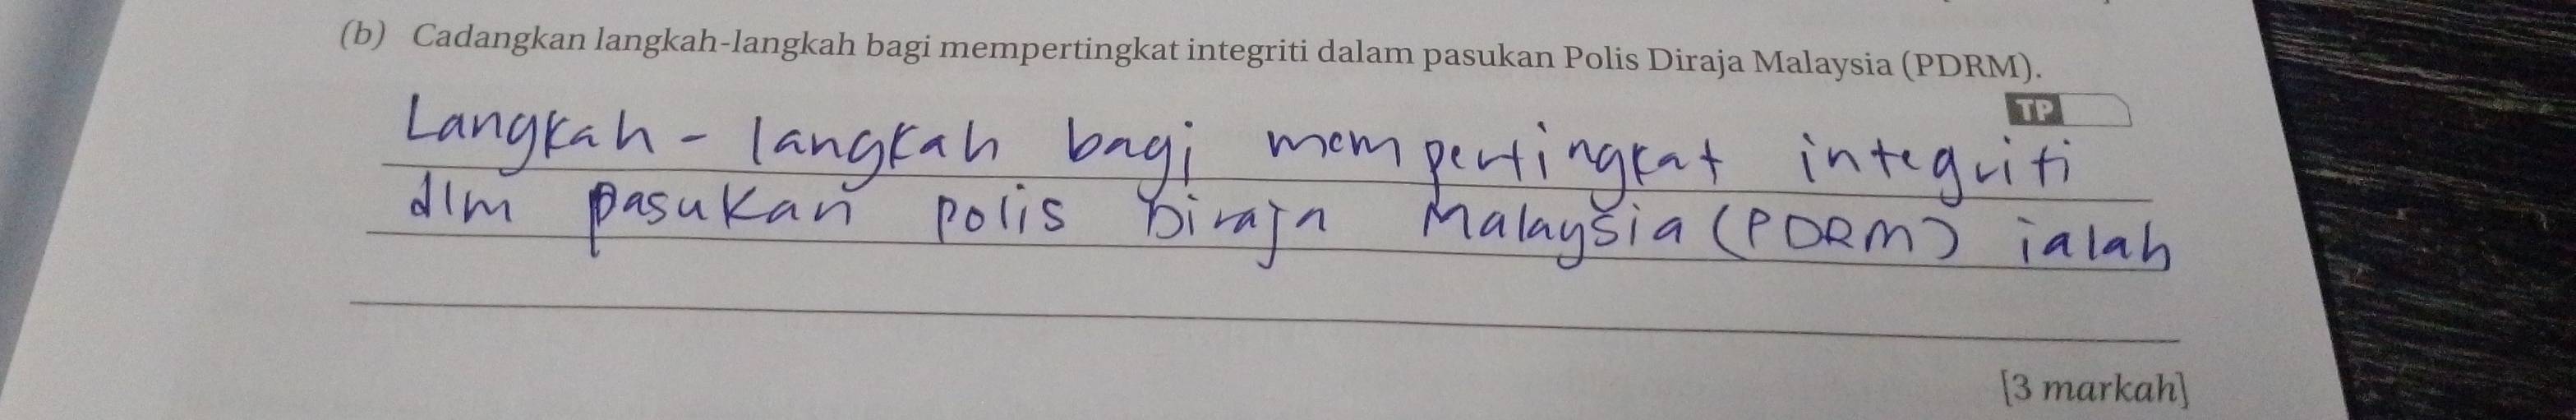 (b) Cadangkan langkah-langkah bagi mempertingkat integriti dalam pasukan Polis Diraja Malaysia (PDRM).
TP
Langkah - langkah bagi mempertingkat integriti
dlm pasukan polis Diraja Malaysia (PDRM) ialah
[3 markah]